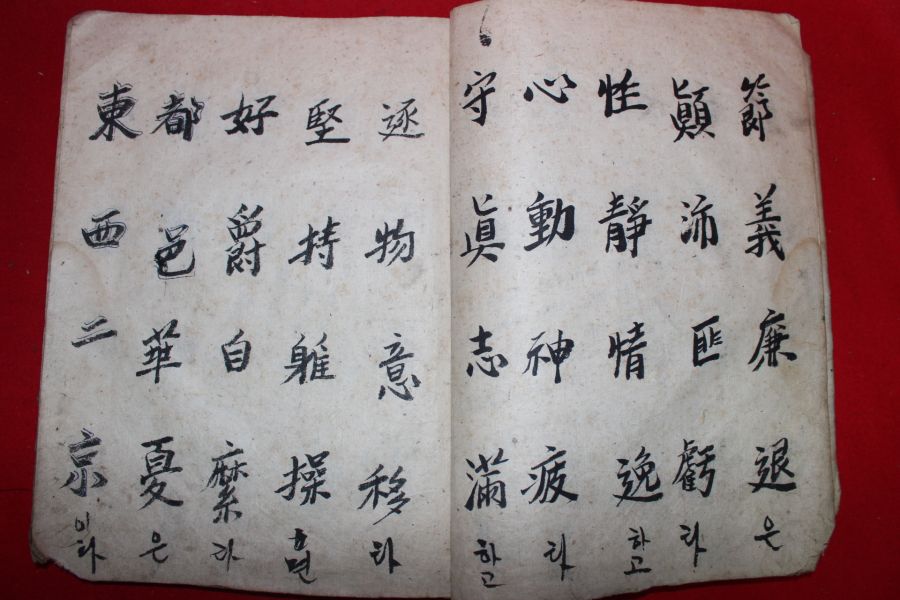 節義廉退은
顚沛匪虧라
性靜情逸하고
心動神疲라
守眞志滿하고
逐物意移라
堅持雅操하면
好爵自縻라
都邑華夏은
東西二京이라